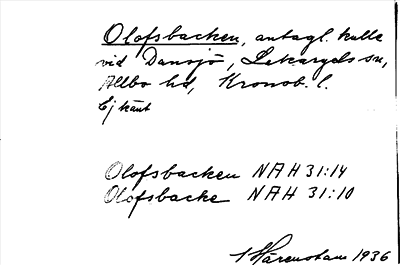 Olofsbacken, antagl. kulle
vid Dansjö, Lekaryds sn,
Allbo hd, Kronob. l.
Ej känt
Olofsbacken NAH 31:14
Olofsbacke NAH 31:10
1936